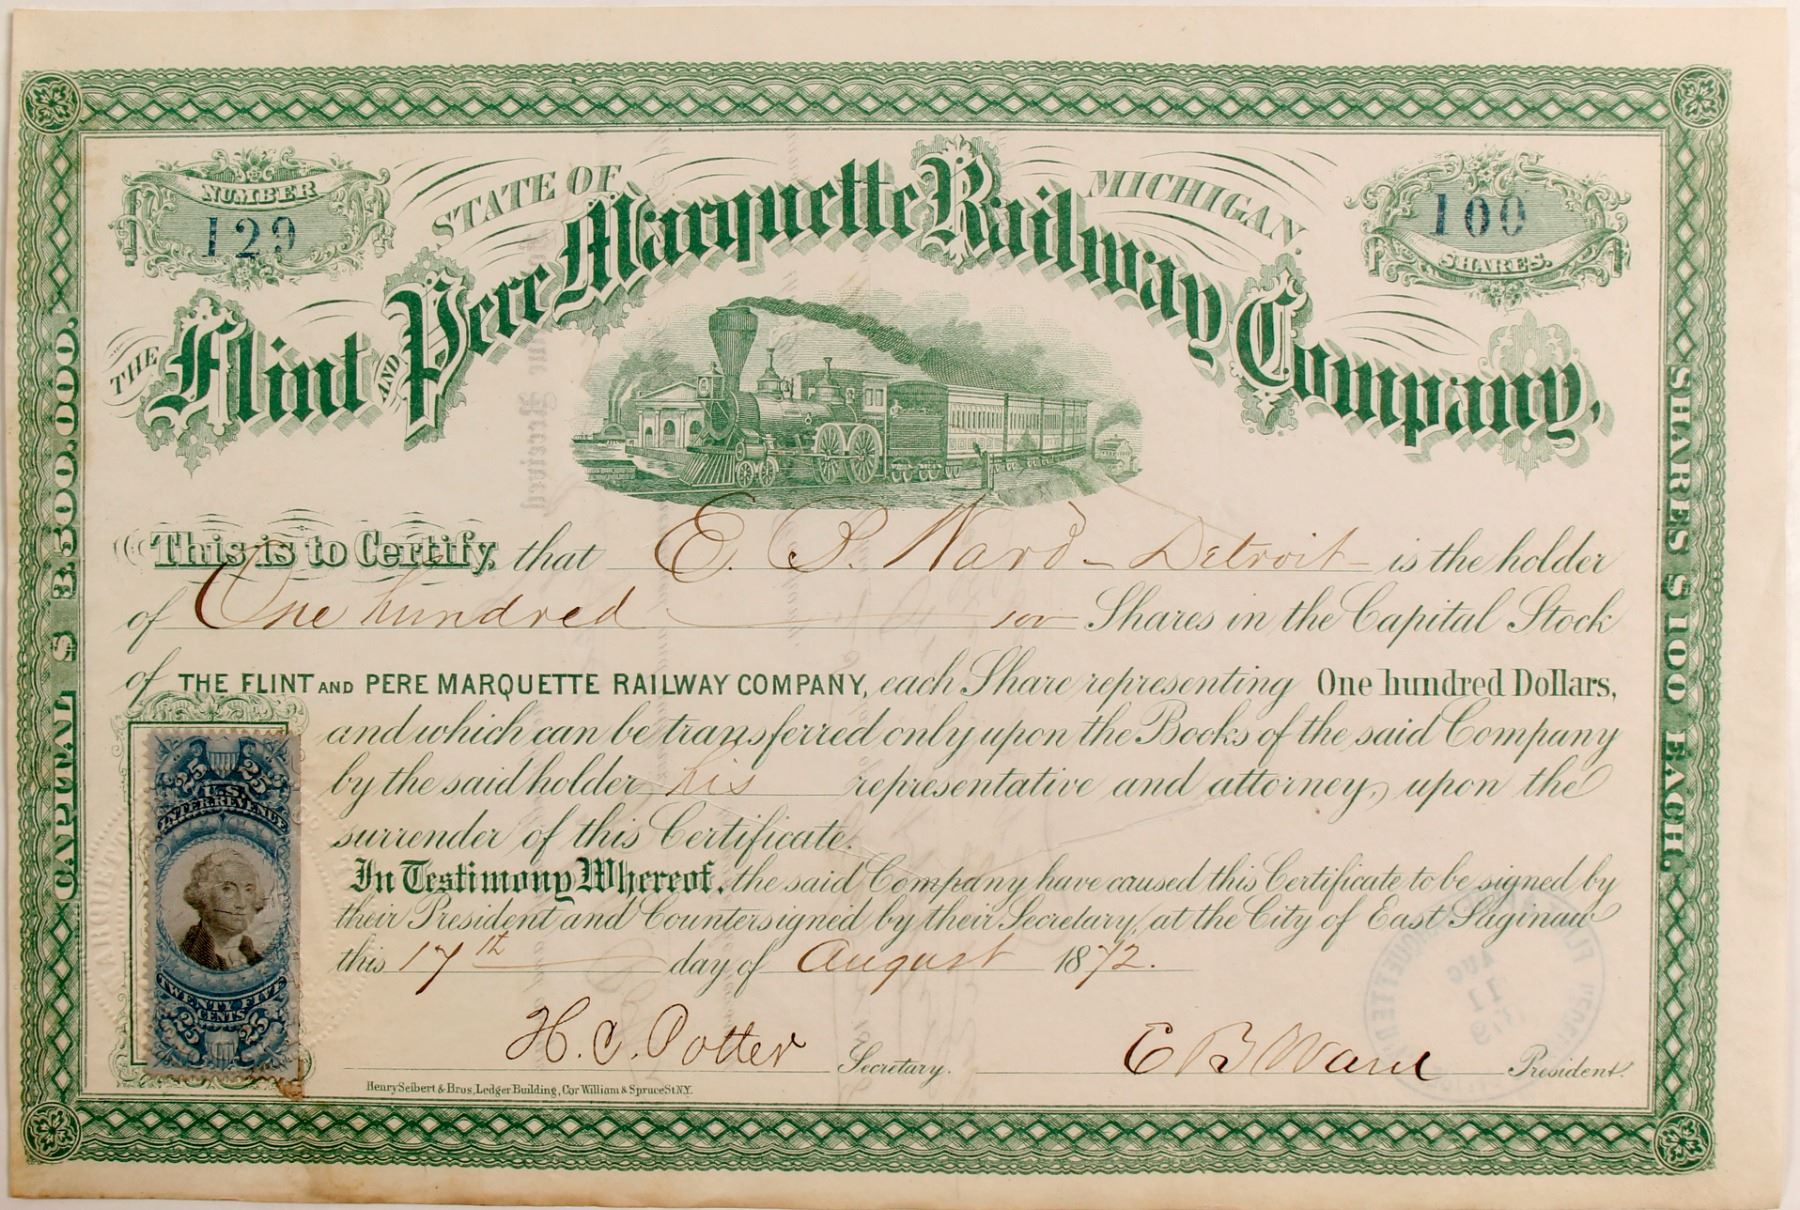 NUMBER
129
STATE OF MICHIGAN.
100
SHARES.
THE Flint AND Pere Marquette Railway Company,
CAPITAL $3.500.000.
SHARES $100 EACH.
This is to Certify, that E. B. Ward - Detroit - is the holder
of One hundred 100 Shares in the Capital Stock
of THE FLINT AND PERE MARQUETTE RAILWAY COMPANY, each Share representing One hundred Dollars,
and which can be transferred only upon the Books of the said Company
by the said holder, his representative and attorney, upon the
surrender of this Certificate.
In Testimony Whereof, the said Company have caused this Certificate to be signed by
their President and Countersigned by their Secretary, at the City of East Saginaw
this 17th day of August 1872.
H. C. Potter Secretary.
E B Ward President.
Henry Seibert & Bros, Ledger Building, Cor William & Spruce St N.Y.
25 25
U.S.
INTER. REVENUE
TWENTY FIVE
CENTS
25 25
MARQUETTE
AUG